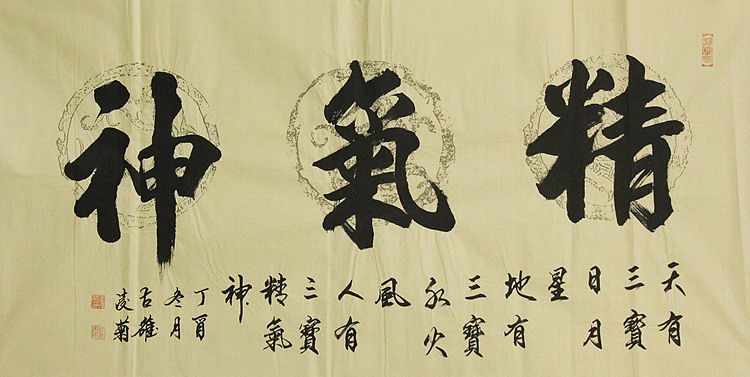 精氣神
天有
三寶
日月
星
地有
三寶
水火
風
人有
三寶
精氣
神
丁酉
冬月
古
凌菊